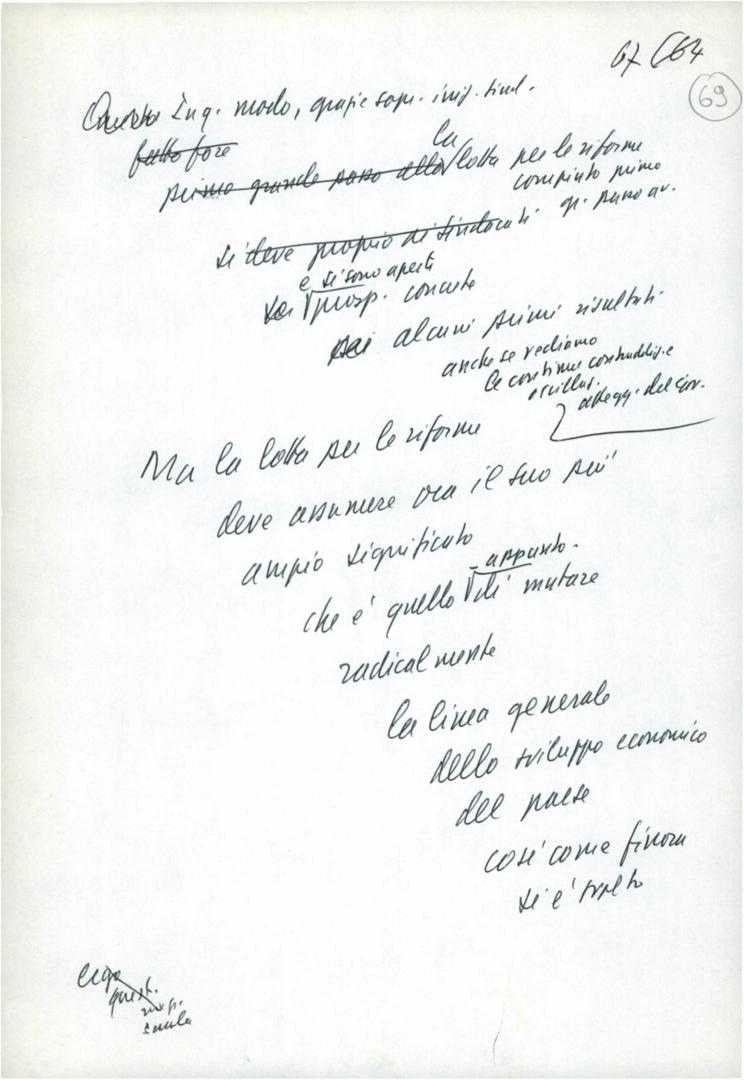 67 (64
69
In q. modo, grazie sopr. iniz. sind.
fatto fare
primo grande passo alla la lotta per le riforme
compiuto primo
si deve proprio ai sindacati gr. passo av.
e si sono aperti
prosp. concrete
alcuni primi risultati
anche se vediamo
le continue contraddiz. e
oscillaz.
attegg. del gov.
Ma la lotta per le riforme
deve assumere ora il suo più
ampio significato
che è quello - appunto - di mutare
radicalmente
la linea generale
dello sviluppo economico
del paese
così come finora
si è svolto
quest.
scuola